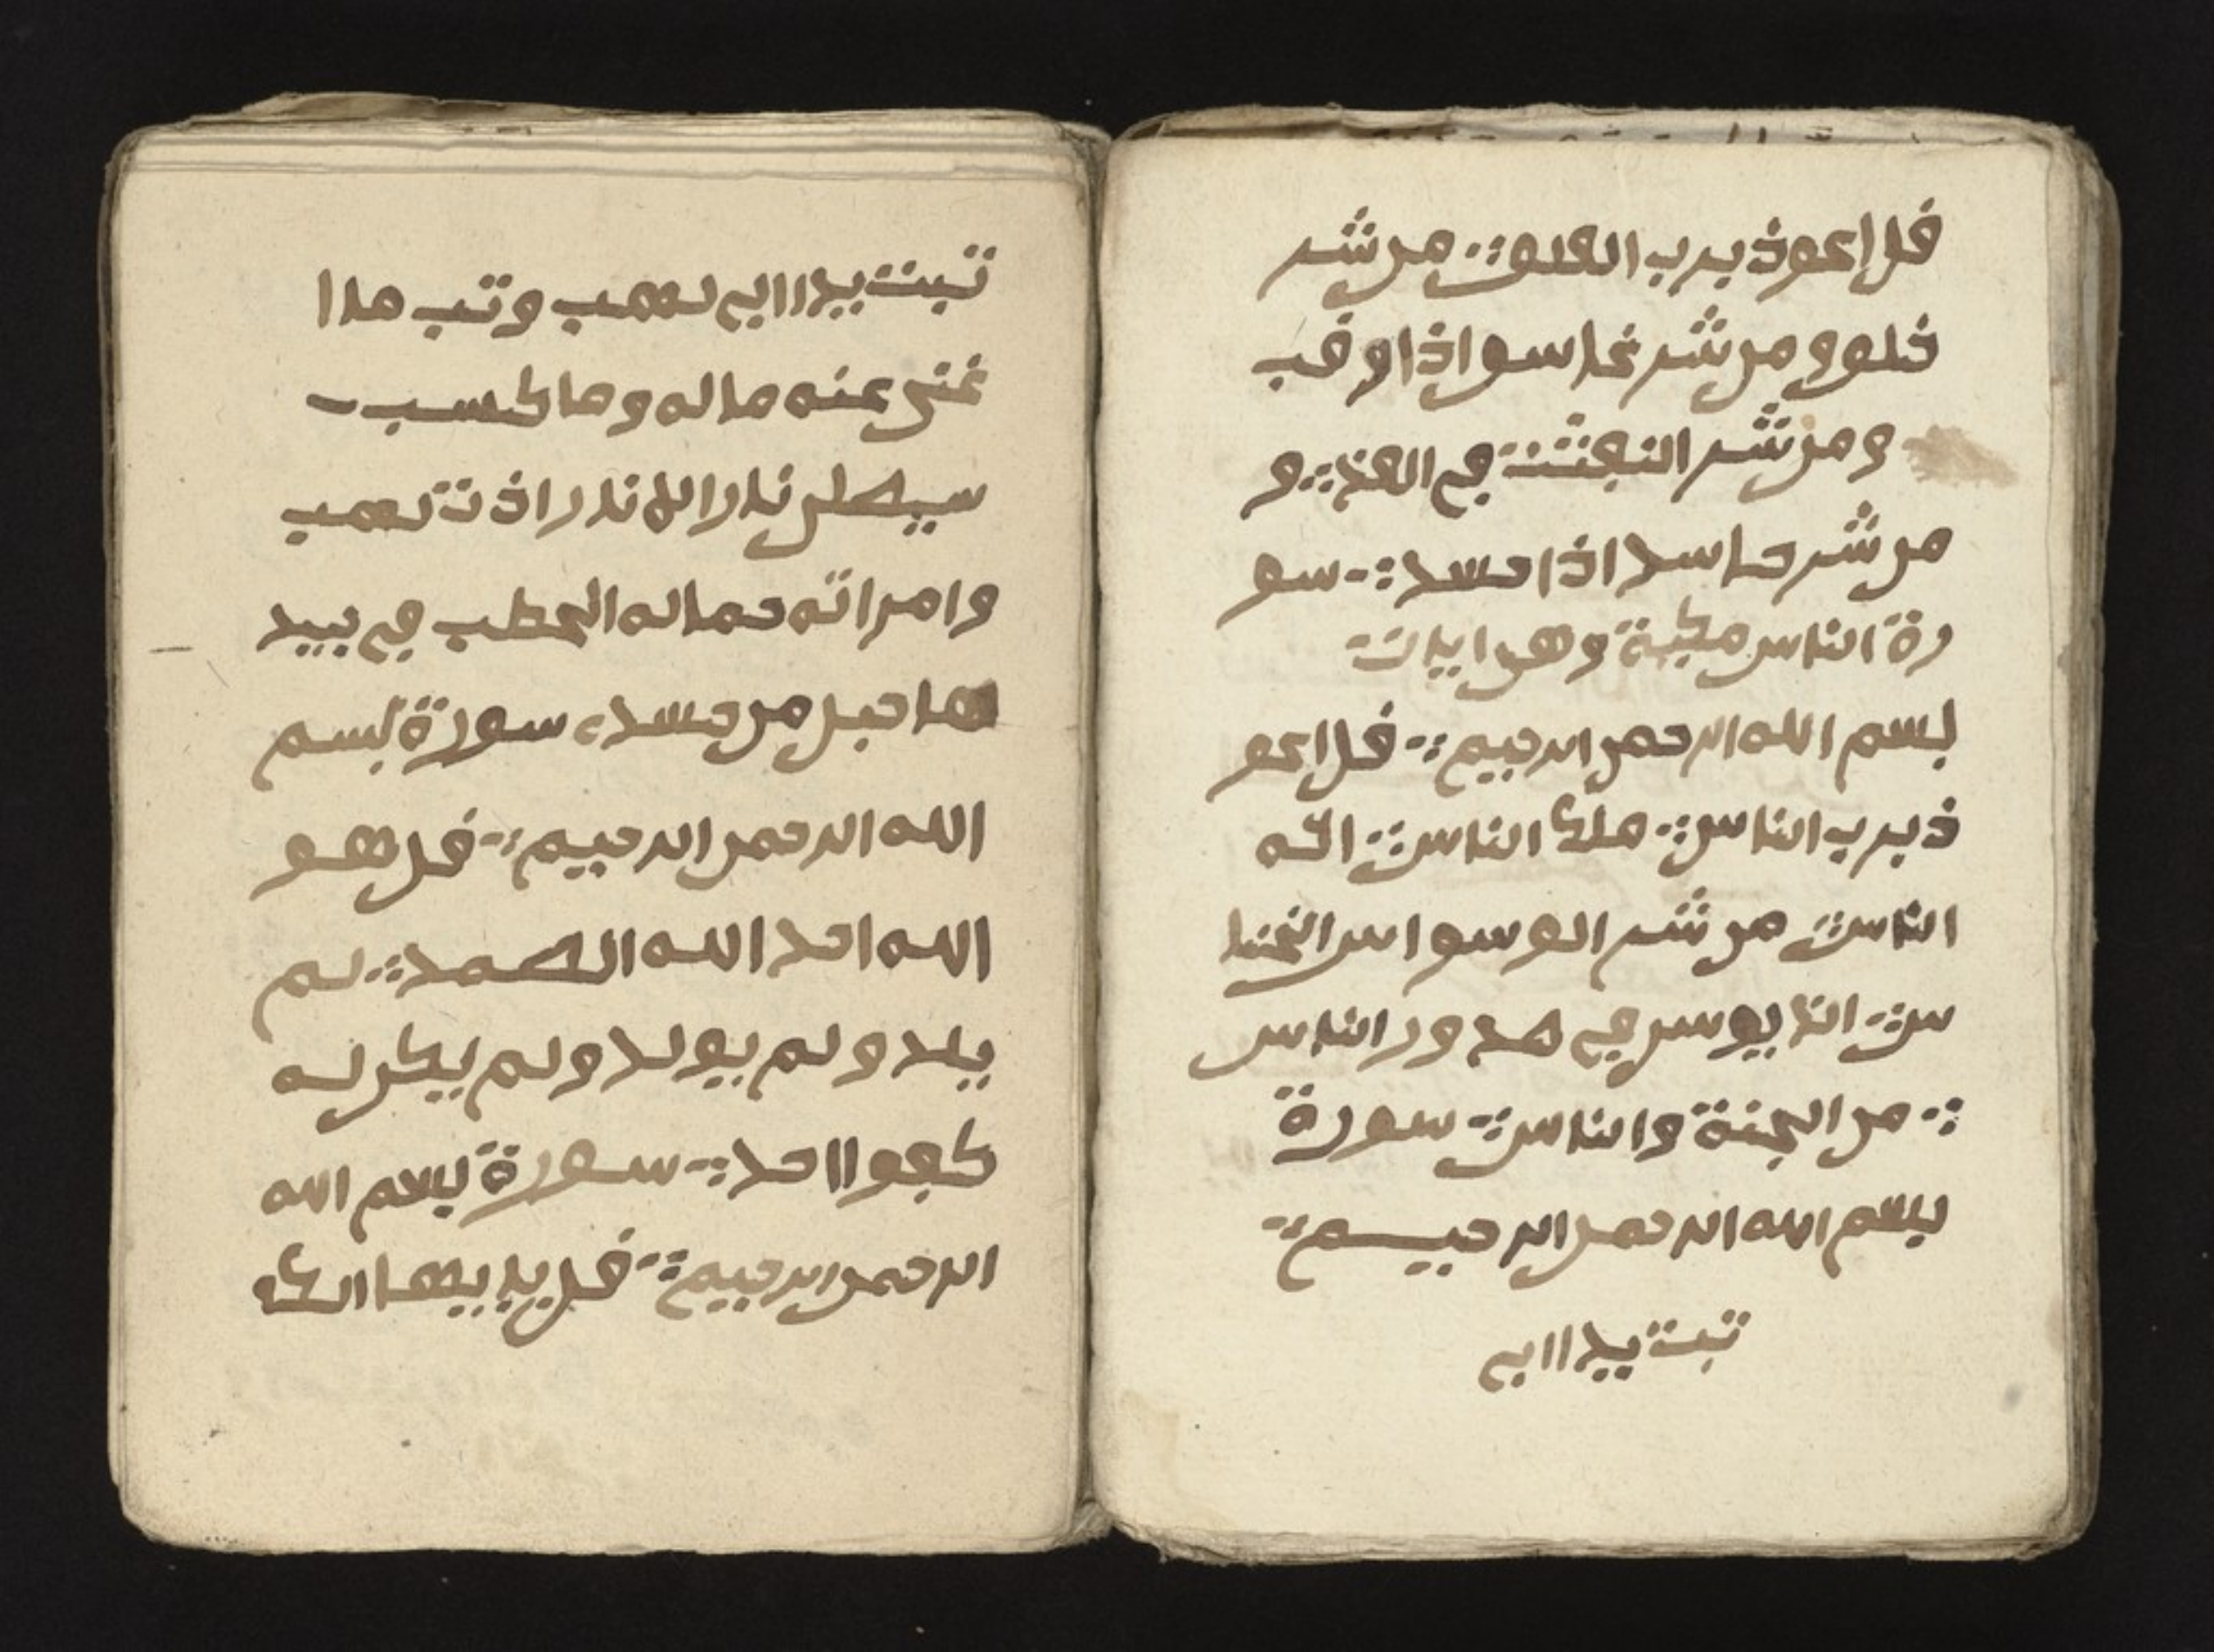 فل اعوذ برب الفلق ؞ من شر
خلوو من شر غاسو اذا وقب
ومن شر النفثت في العفد ؞ و
من شر حاسد اذا حسد ؞ سو
رة الناس مكية وهي ايات
بسم الله الرحمن الرحيم ؞ فل اعو
ذ برب الناس ؞ ملك الناس ؞ اله
الناس ؞ من شر الوسواس الخنا
س ؞ الذا يوس في صدور الناس
؞ من الجنة والناس ؞ سورة
بسم الله الرحمن الرحيم ؞
تبت يدا ابي
تبت يدا ابي لهب وتب ما ا
غنى عنه ماله وما كسب
سيصلى نارا نارا ذت لهب
وامراته حماله الحطب في جيد
ها حبل من مسد سورة بسم
الله الرحمن الرحيم ؞ فل هو
الله احد الله الصمد ؞ لم
يلد ولم يولد ولم يكن له
كفوا احد ؞ سورة بسم الله
الرحمن الرحيم ؞ فل يايها الك